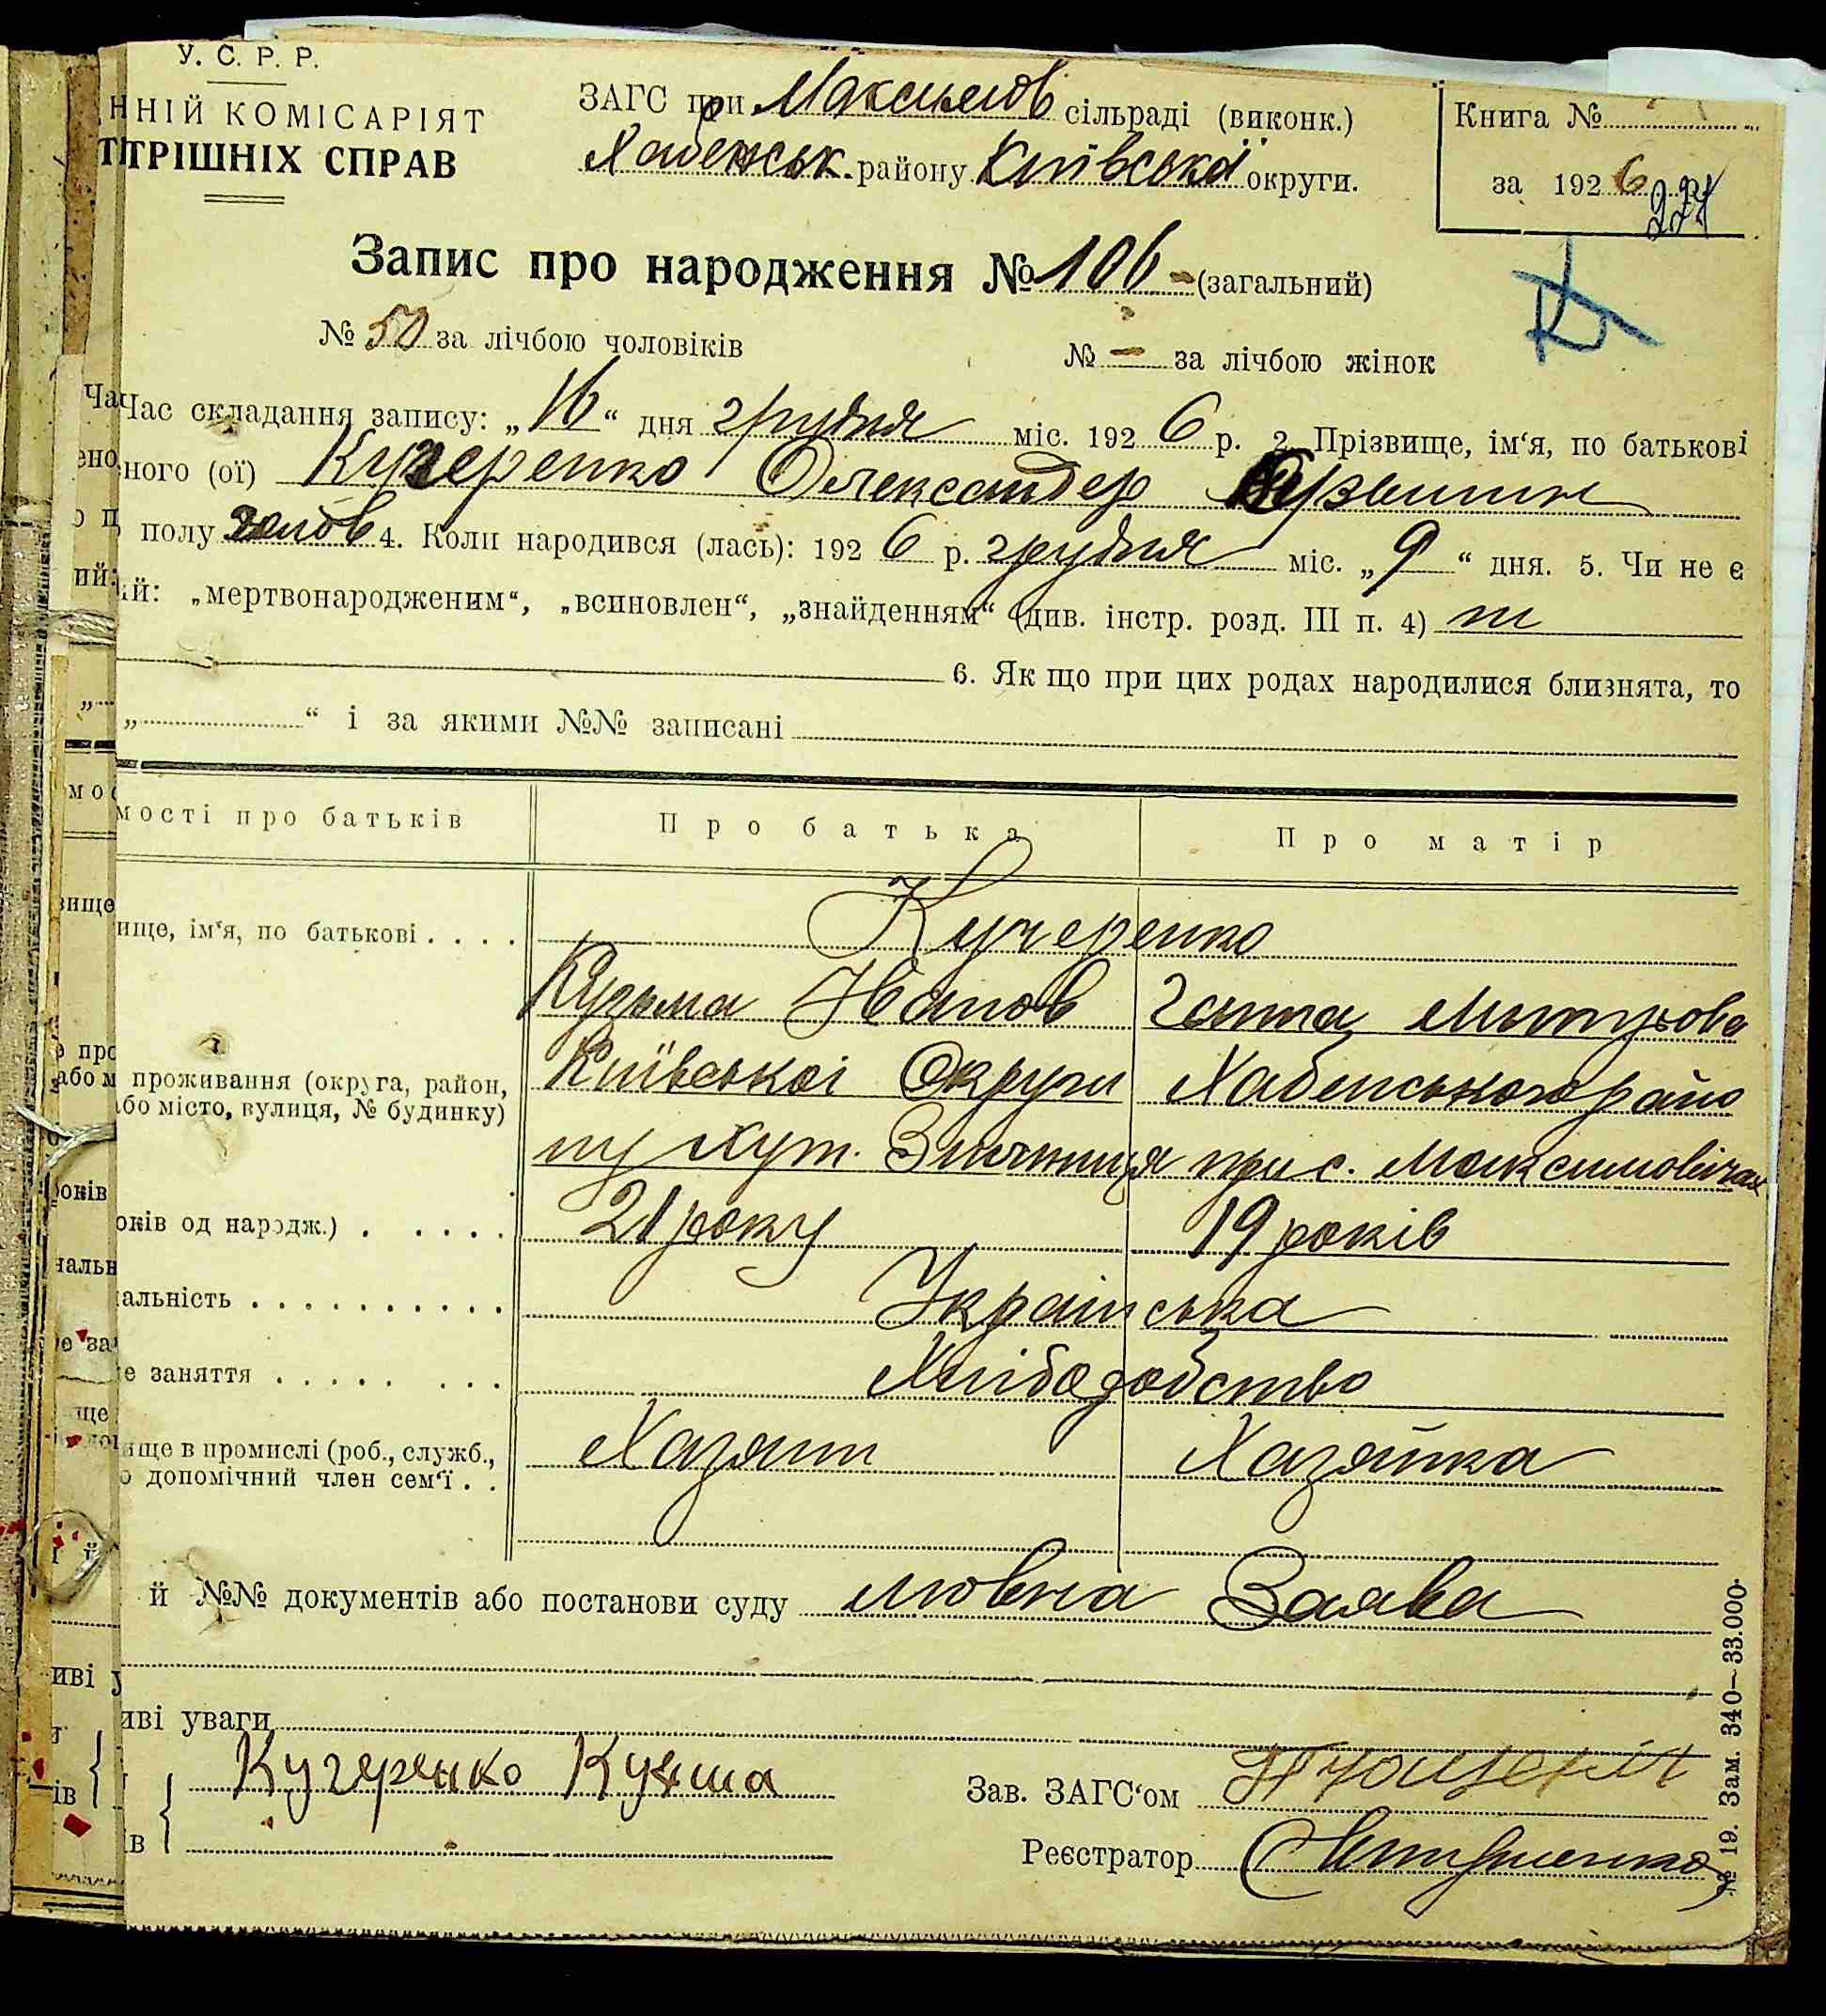 У. С. Р. Р.
ННІЙ КОМІСАРІЯТ
ТРІШНІХ СПРАВ
ЗАГС при Максимов сільраді (виконк.)
Хабенськ. району Київської округи.
Книга №
за 1926 р.
224
Запис про народження № 106 - (загальний)
№ 50 за лічбою чоловіків
№ - за лічбою жінок
Час складання запису: „16“ дня грудня міс. 1926 р. 2. Прізвище, ім‘я, по батькові
ного (ої) Кучеренко Олександер Кузьмин
полу чолов 4. Коли народився (лась): 1926 р. грудня міс. „9“ дня. 5. Чи не є
ий: „мертвонародженим“, „всиновлен“, „знайденням“ (див. інстр. розд. III п. 4) ні
6. Як що при цих родах народилися близнята, то
„ “ і за якими №№ записані
мості про батьків Про батька Про матір
ище, ім‘я, по батькові . . . . Кучеренко
Кузьма Іванов Ганна
проживання (округа, район, Київської Округи Хабенського райо
або місто, вулиця, № будинку)
ну Хут. при с. Максимовічах
оків од народж.) . . . . . 21 року 19 років
альність . . . . . . . . . . Українська
е заняття . . . . . . . . Хлібородство
ище в промислі (роб., служб., Хазяїн Хазяйка
о допомічний член сем‘ї . .
й №№ документів або постанови суду мовна Заява
иві уваги
Кучеренко Кузма
Зав. ЗАГС‘ом
ів
Реєстратор
№ 19. Зам. 340—33.000.